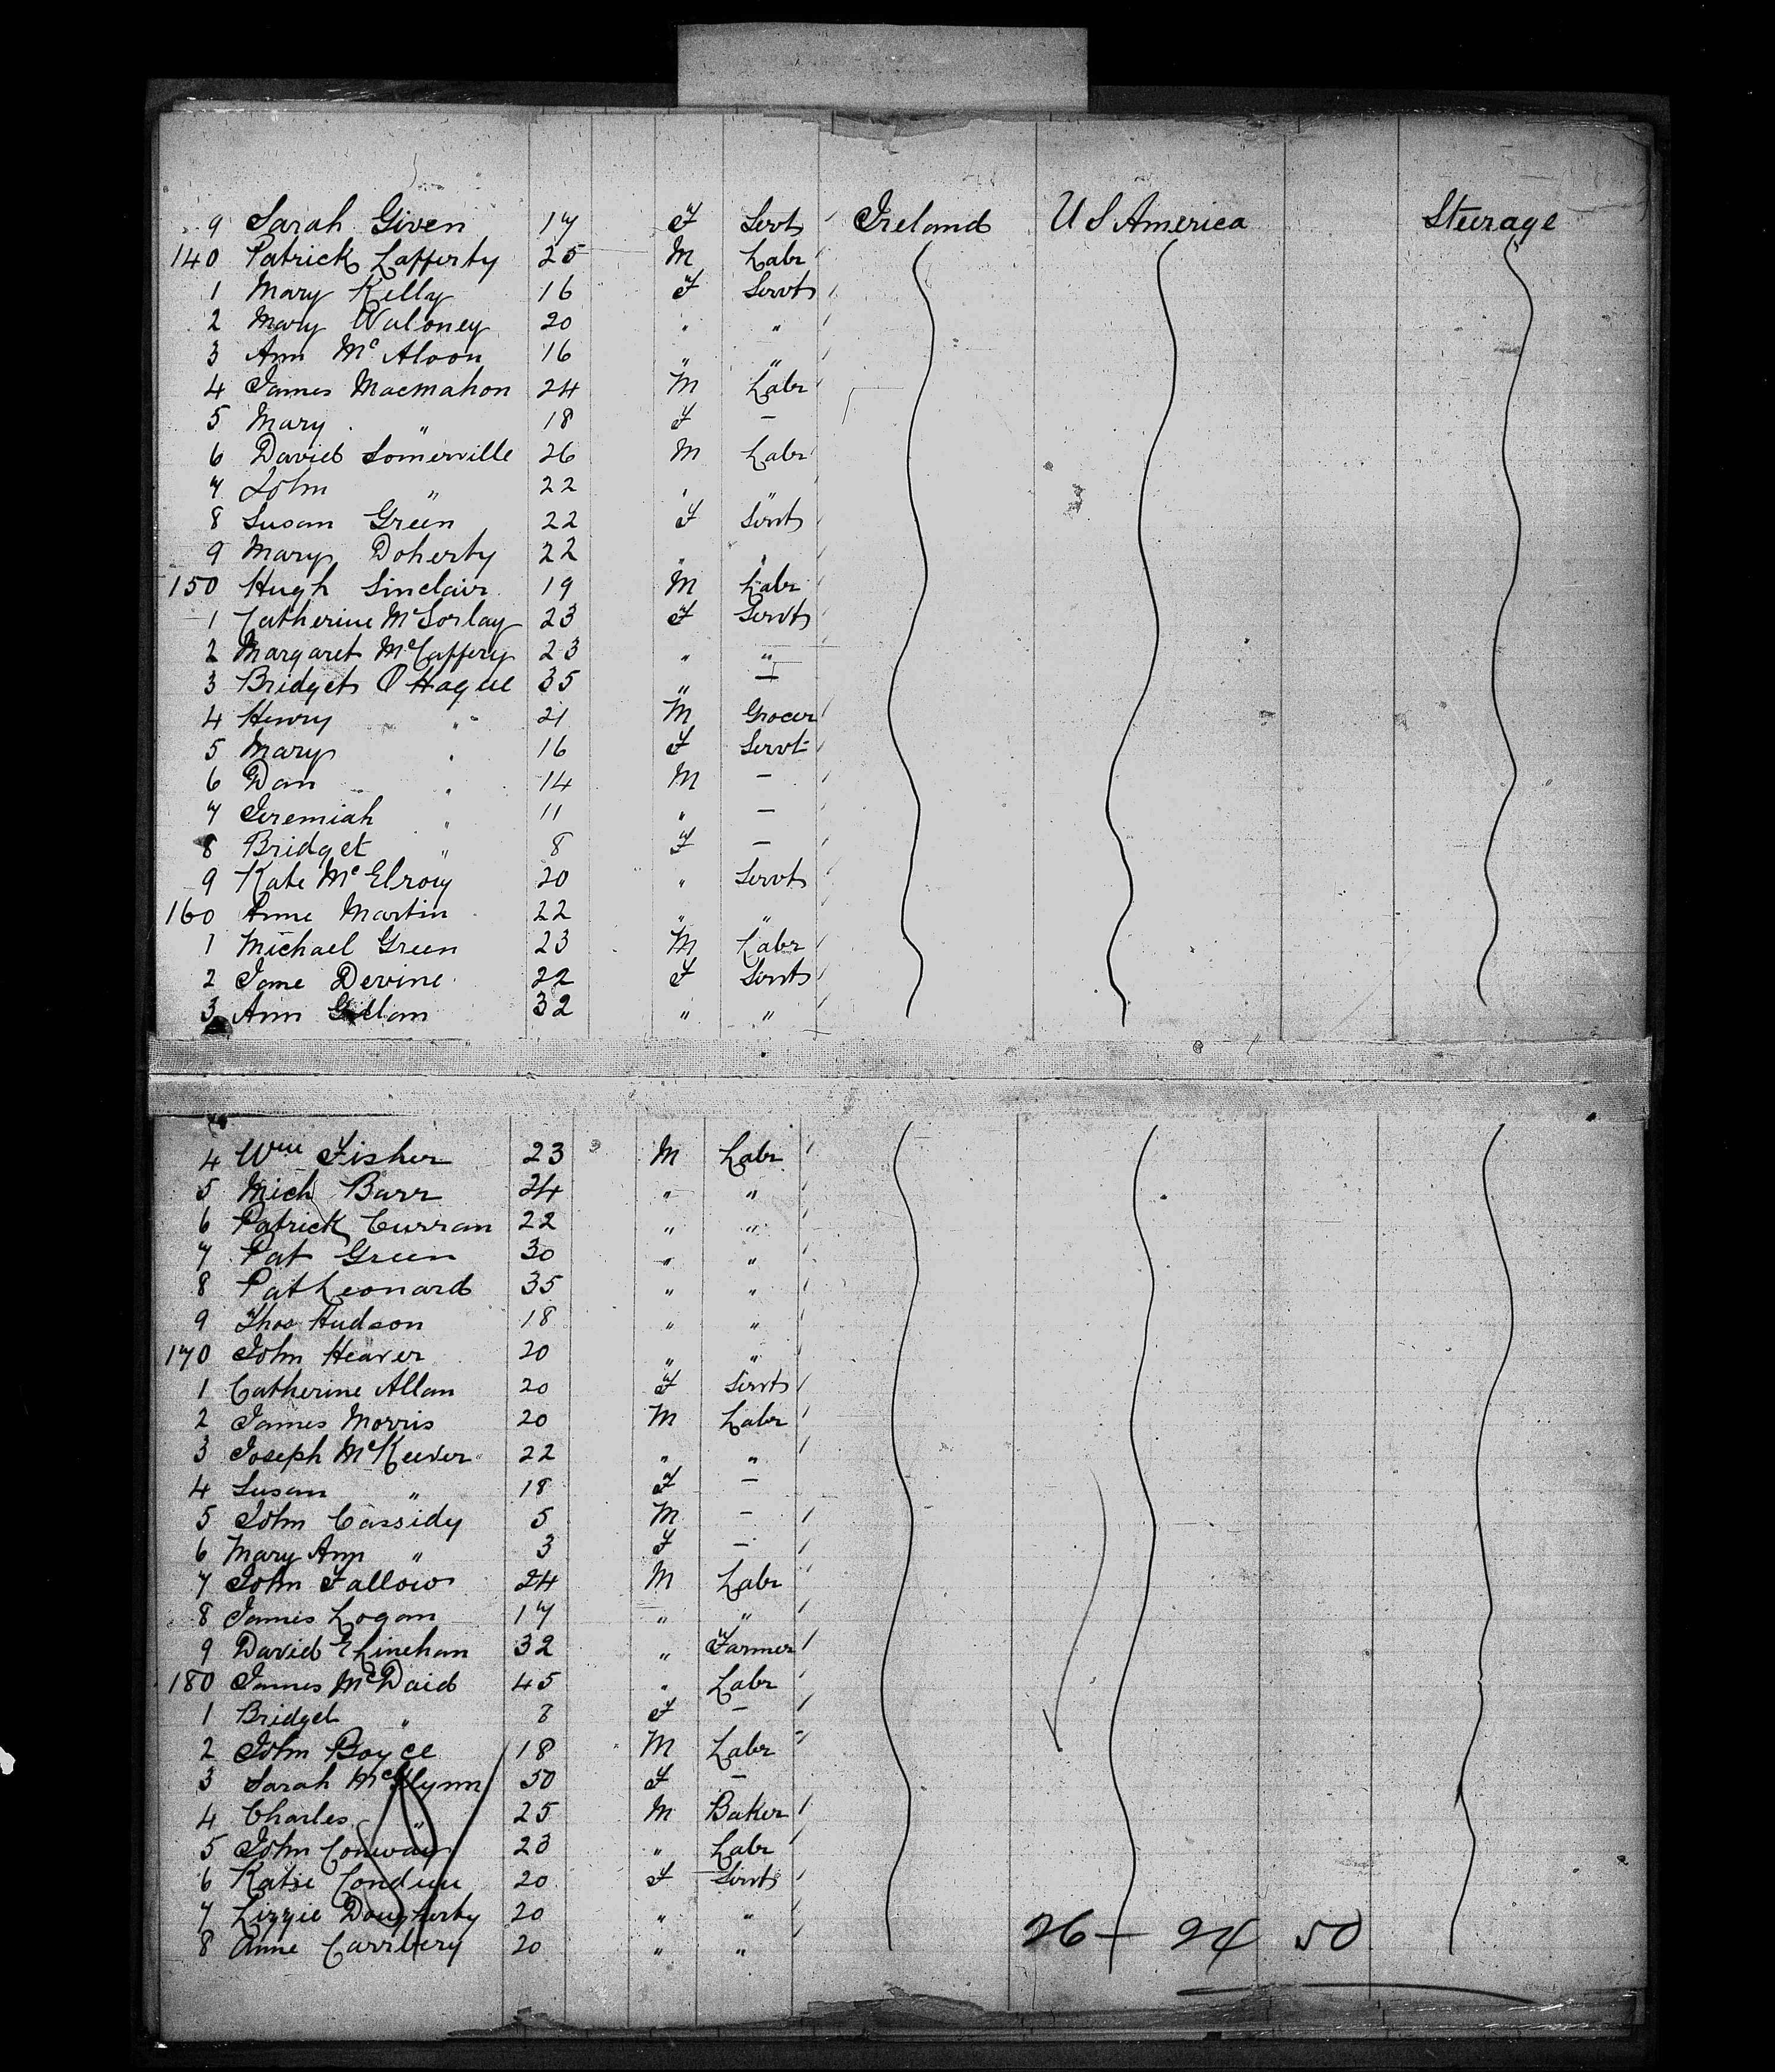 9 Sarah Given 17 F Servt Ireland U S America Steerage
140 Patrick Lafferty 25 M Labr
1 Mary Kelly 16 F Servt
2 Mary Waloney 20 " "
3 Ann Mc Aloon 16 " "
4 James Macmahon 24 M Labr
5 Mary " 18 F —
6 David Somerville 26 M Labr
7 John " 22 " "
8 Susan Green 22 F Servt
9 Mary Doherty 22 " "
150 Hugh Sinclair 19 M Labr
1 Catherine McSorlay 23 F Servt
2 Margaret McCaffery 23 " "
3 Bridget O Hague 35 " —
4 Henry " 21 M Grocer
5 Mary " 16 F Servt
6 Dan " 14 M —
7 Jeremiah " 11 " —
8 Bridget " 8 F —
9 Kate Mc Elroy 20 " Servt
160 Anne Martin 22 " "
1 Michael Green 23 M Labr
2 Jane Devine 22 F Servt
3 Ann Gillan 32 " "
4 Wm Fisher 23 M Labr
5 Mich Barr 24 " "
6 Patrick Curran 22 " "
7 Pat Green 30 " "
8 Pat Leonard 35 " "
9 Thos Hudson 18 " "
170 John Heaver 20 " "
1 Catherine Allan 20 F Servt
2 James Morris 20 M Labr
3 Joseph McKeever 22 " "
4 Susan " 18 F —
5 John Cassidy 5 M —
6 Mary Ann " 3 F —
7 John Fallow 24 M Labr
8 James Logan 17 " "
9 David E Linehan 32 " Farmer
180 James McDaid 45 " Labr
1 Bridget " 8 F —
2 John Boyce 18 M Labr
3 Sarah McGlynn 50 F —
4 Charles " 25 M Baker
5 John Conway 23 " Labr
6 Katie 20 F Servt
7 Lizzie Dougherty 20 " "
8 Anne Carrbery 20 " "
26 — 24 50